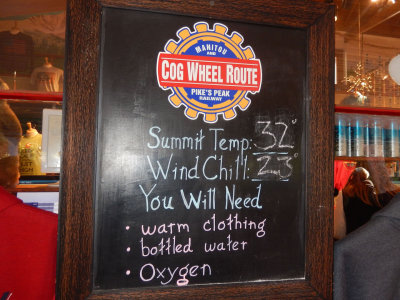 MANITOU
AND
COG WHEEL ROUTE
PIKE'S PEAK
RAILWAY
Summit Temp: 32°
Wind Chill: 23°
You Will Need
• warm clothing
• bottled water
• Oxygen